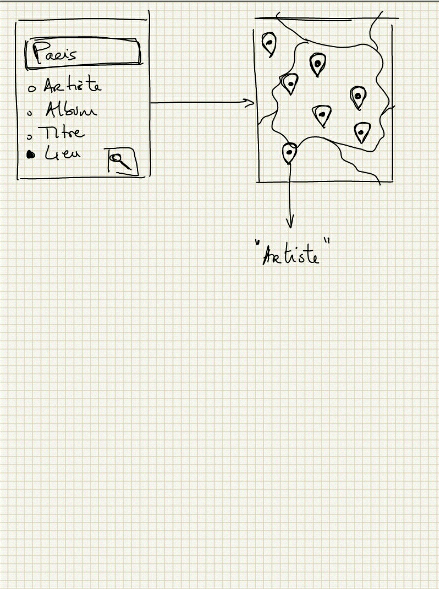 Paris
Artiste
Album
Titre
Lieu
"Artiste"